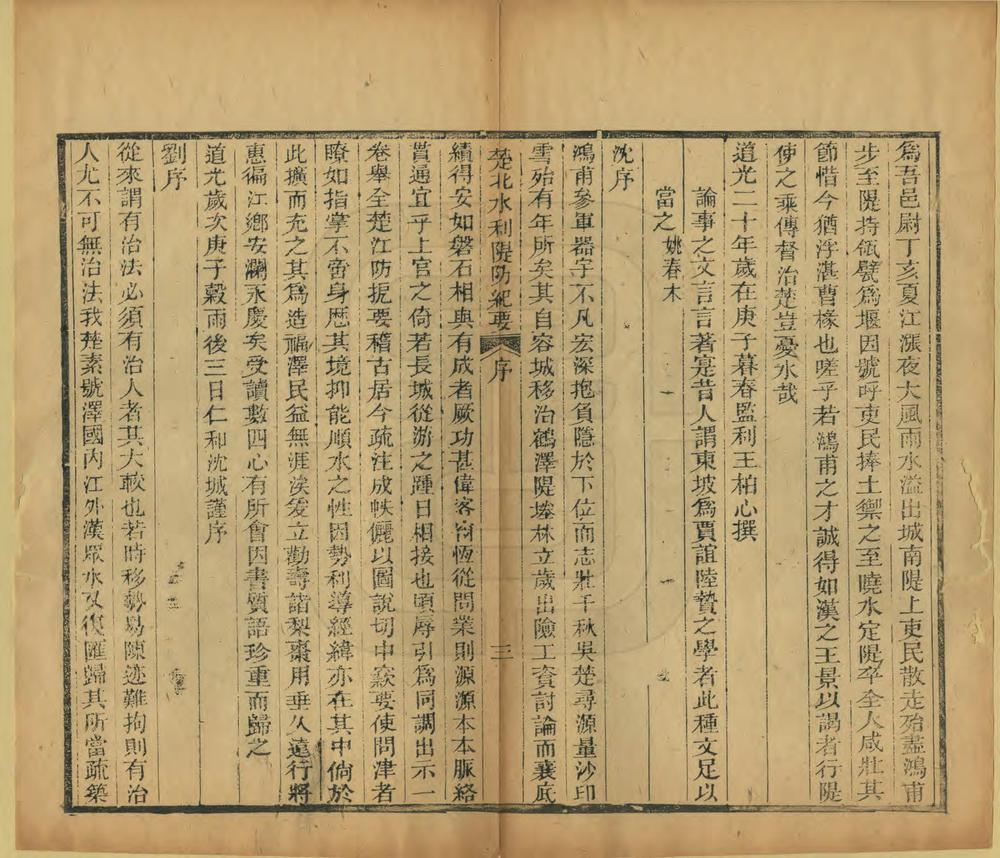 爲吾邑尉丁亥夏江漲夜大風雨水溢出城南隄上吏民散走殆盡鴻甫
步至隄持瓴甓爲堰因號呼吏民捧土禦之至曉水定隄卒全人咸壯其
節惜今猶浮湛曹椽也嗟乎若鴻甫之才誠得如漢之王景以謁者行隄
使之乘傳督治楚豈憂水哉
道光二十年歲在庚子暮春監利王柏心撰
論事之文言言著寔昔人謂東坡爲賈誼陸贄之學者此種文足以
當之姚春木
沈序
鴻甫參軍器宇不凡宏深抱負隱於下位而志壯千秋吳楚尋源量沙印
雪殆有年所矣其自容城移治鶴澤隄塍林立歲出險工資討論而襄底
楚北水利隄防紀要 序 三
績得安如磐石相與有成者厥功甚偉客窗恆從問業則源源本本脈絡
貫通宜乎上官之倚若長城從游之踵日相接也頃辱引爲同調出示一
卷舉全楚江防扼要稽古居今疏注成帙儷以圖說切中窾要使問津者
瞭如指掌不啻身歷其境抑能順水之性因勢利導經緯亦在其中倘於
此擴而充之其爲造福澤民益無涯涘爰立勸壽諸梨棗用垂久遠行將
惠徧江鄉安瀾永慶矣受讀數四心有所會因書質語珍重而歸之
道光歲次庚子穀雨後三日仁和沈城謹序
劉序
從來謂有治法必須有治人者其大較也若時移勢易陳迹難拘則有治
人尤不可無治法我楚素號澤國內江外漢眾水又復匯歸其所當疏築